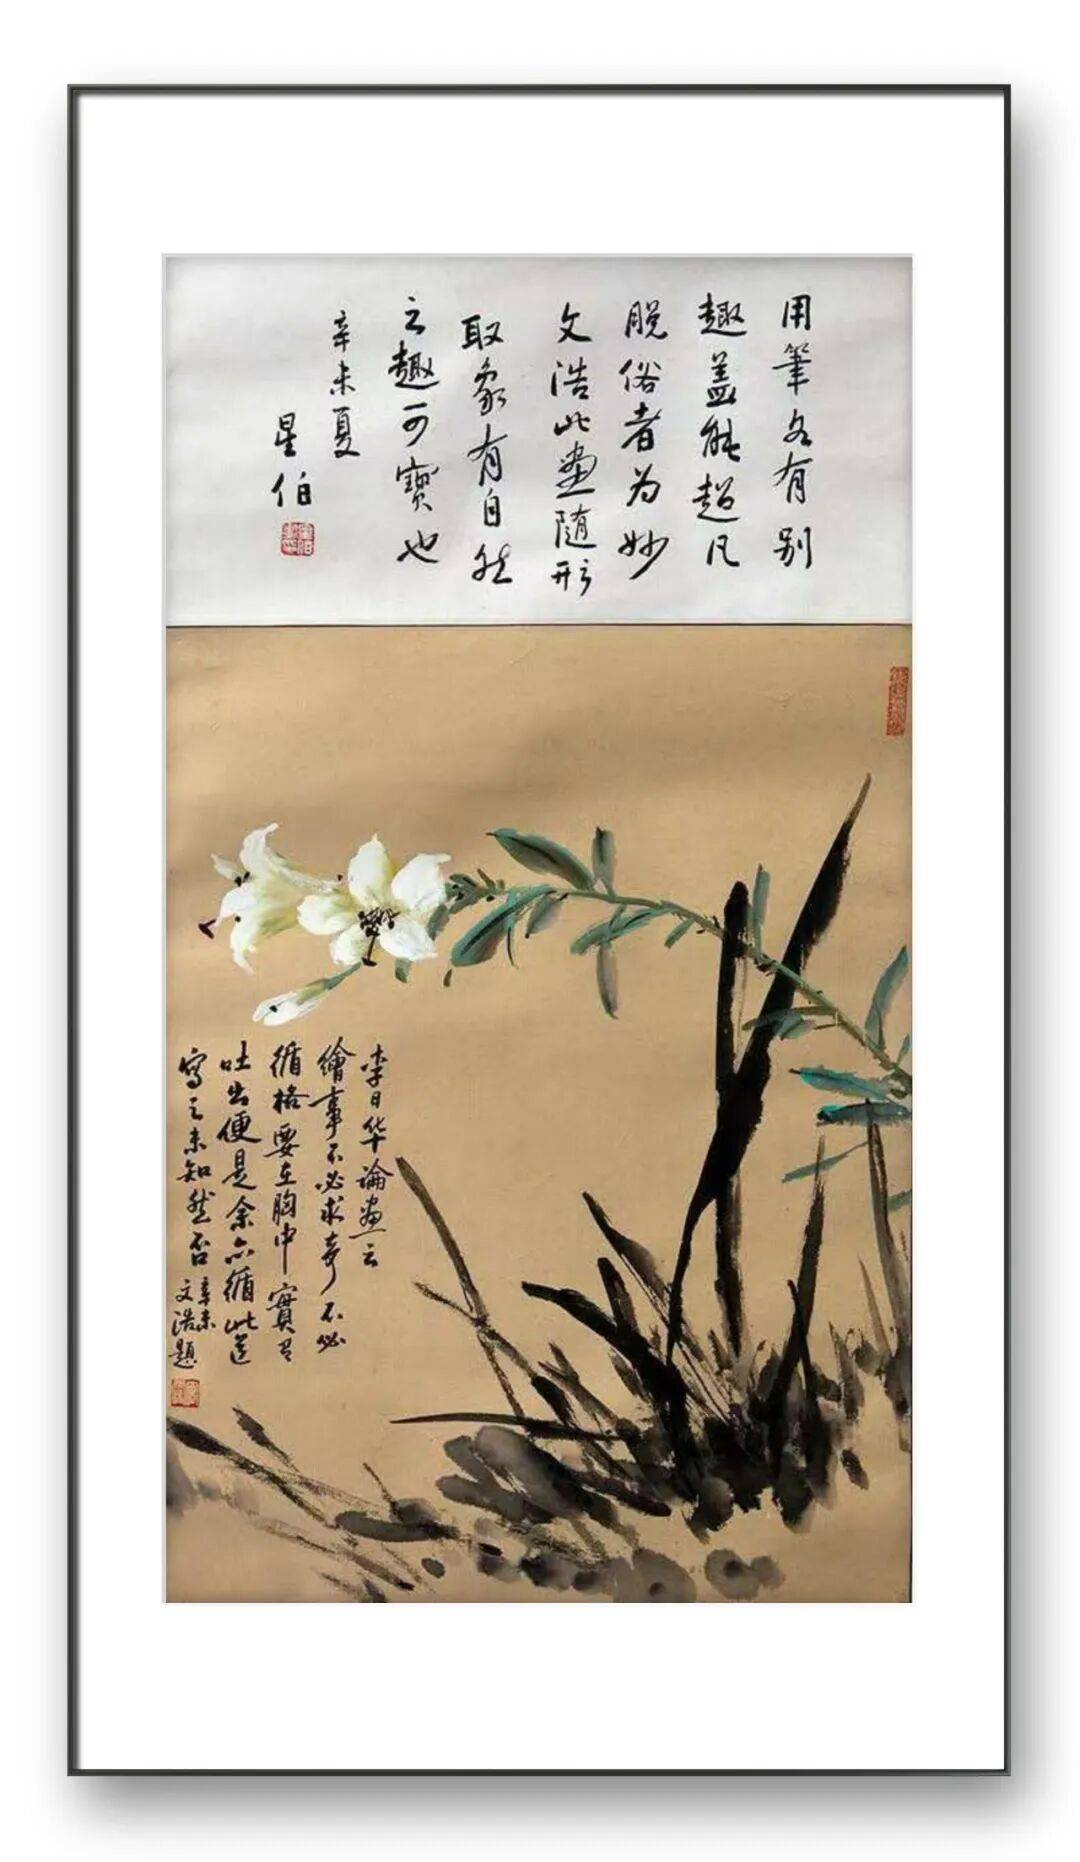 用筆各有别
趣盖能超凡
脱俗者为妙
文浩此畫随形
取象有自然
之趣可寶也
辛未夏
星伯
李日华論畫云
繪事不必求奇不必
循格要在胸中實有
吐出便是余亦循此道
寫之未知然否辛未
文浩題